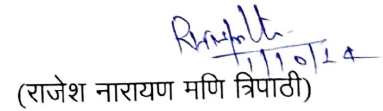 1/10/24
(राजेश नारायण मणि त्रिपाठी)